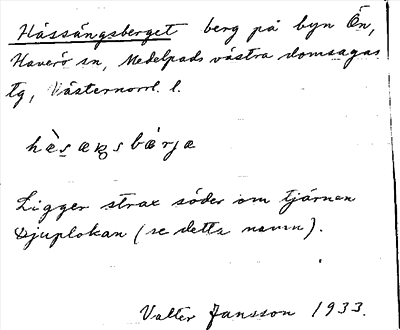 Hässängsberget berg på byn Ön,
Haverö sn, Medelpads västra domsagas
tg, Västernorrl. l.
Ligger strax söder om tjärnen
Djuplokan (se detta namn).
Valter Jansson 1933.